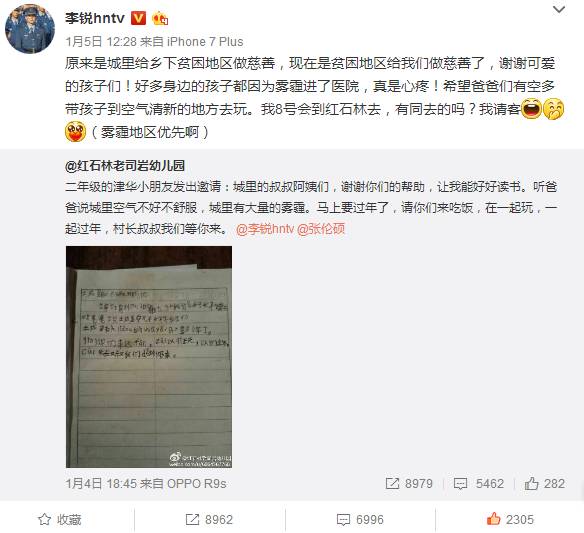 李锐hntv
1月5日 12:28 来自 iPhone 7 Plus
原来是城里给乡下贫困地区做慈善，现在是贫困地区给我们做慈善了，谢谢可爱
的孩子们！好多身边的孩子都因为雾霾进了医院，真是心疼！希望爸爸们有空多
带孩子到空气清新的地方去玩。我8号会到红石林去，有同去的吗？我请客
（雾霾地区优先啊）
@红石林老司岩幼儿园
二年级的津华小朋友发出邀请：城里的叔叔阿姨们，谢谢你们的帮助，让我能好好读书。听爸
爸说城里空气不好不舒服，城里有大量的雾霾。马上要过年了，请你们来吃饭，在一起玩，一
起过年，村长叔叔我们等你来。 @李锐hntv @张伦硕
1月4日 18:45 来自 OPPO R9s
8979
5462
282
收藏
8962
6996
2305